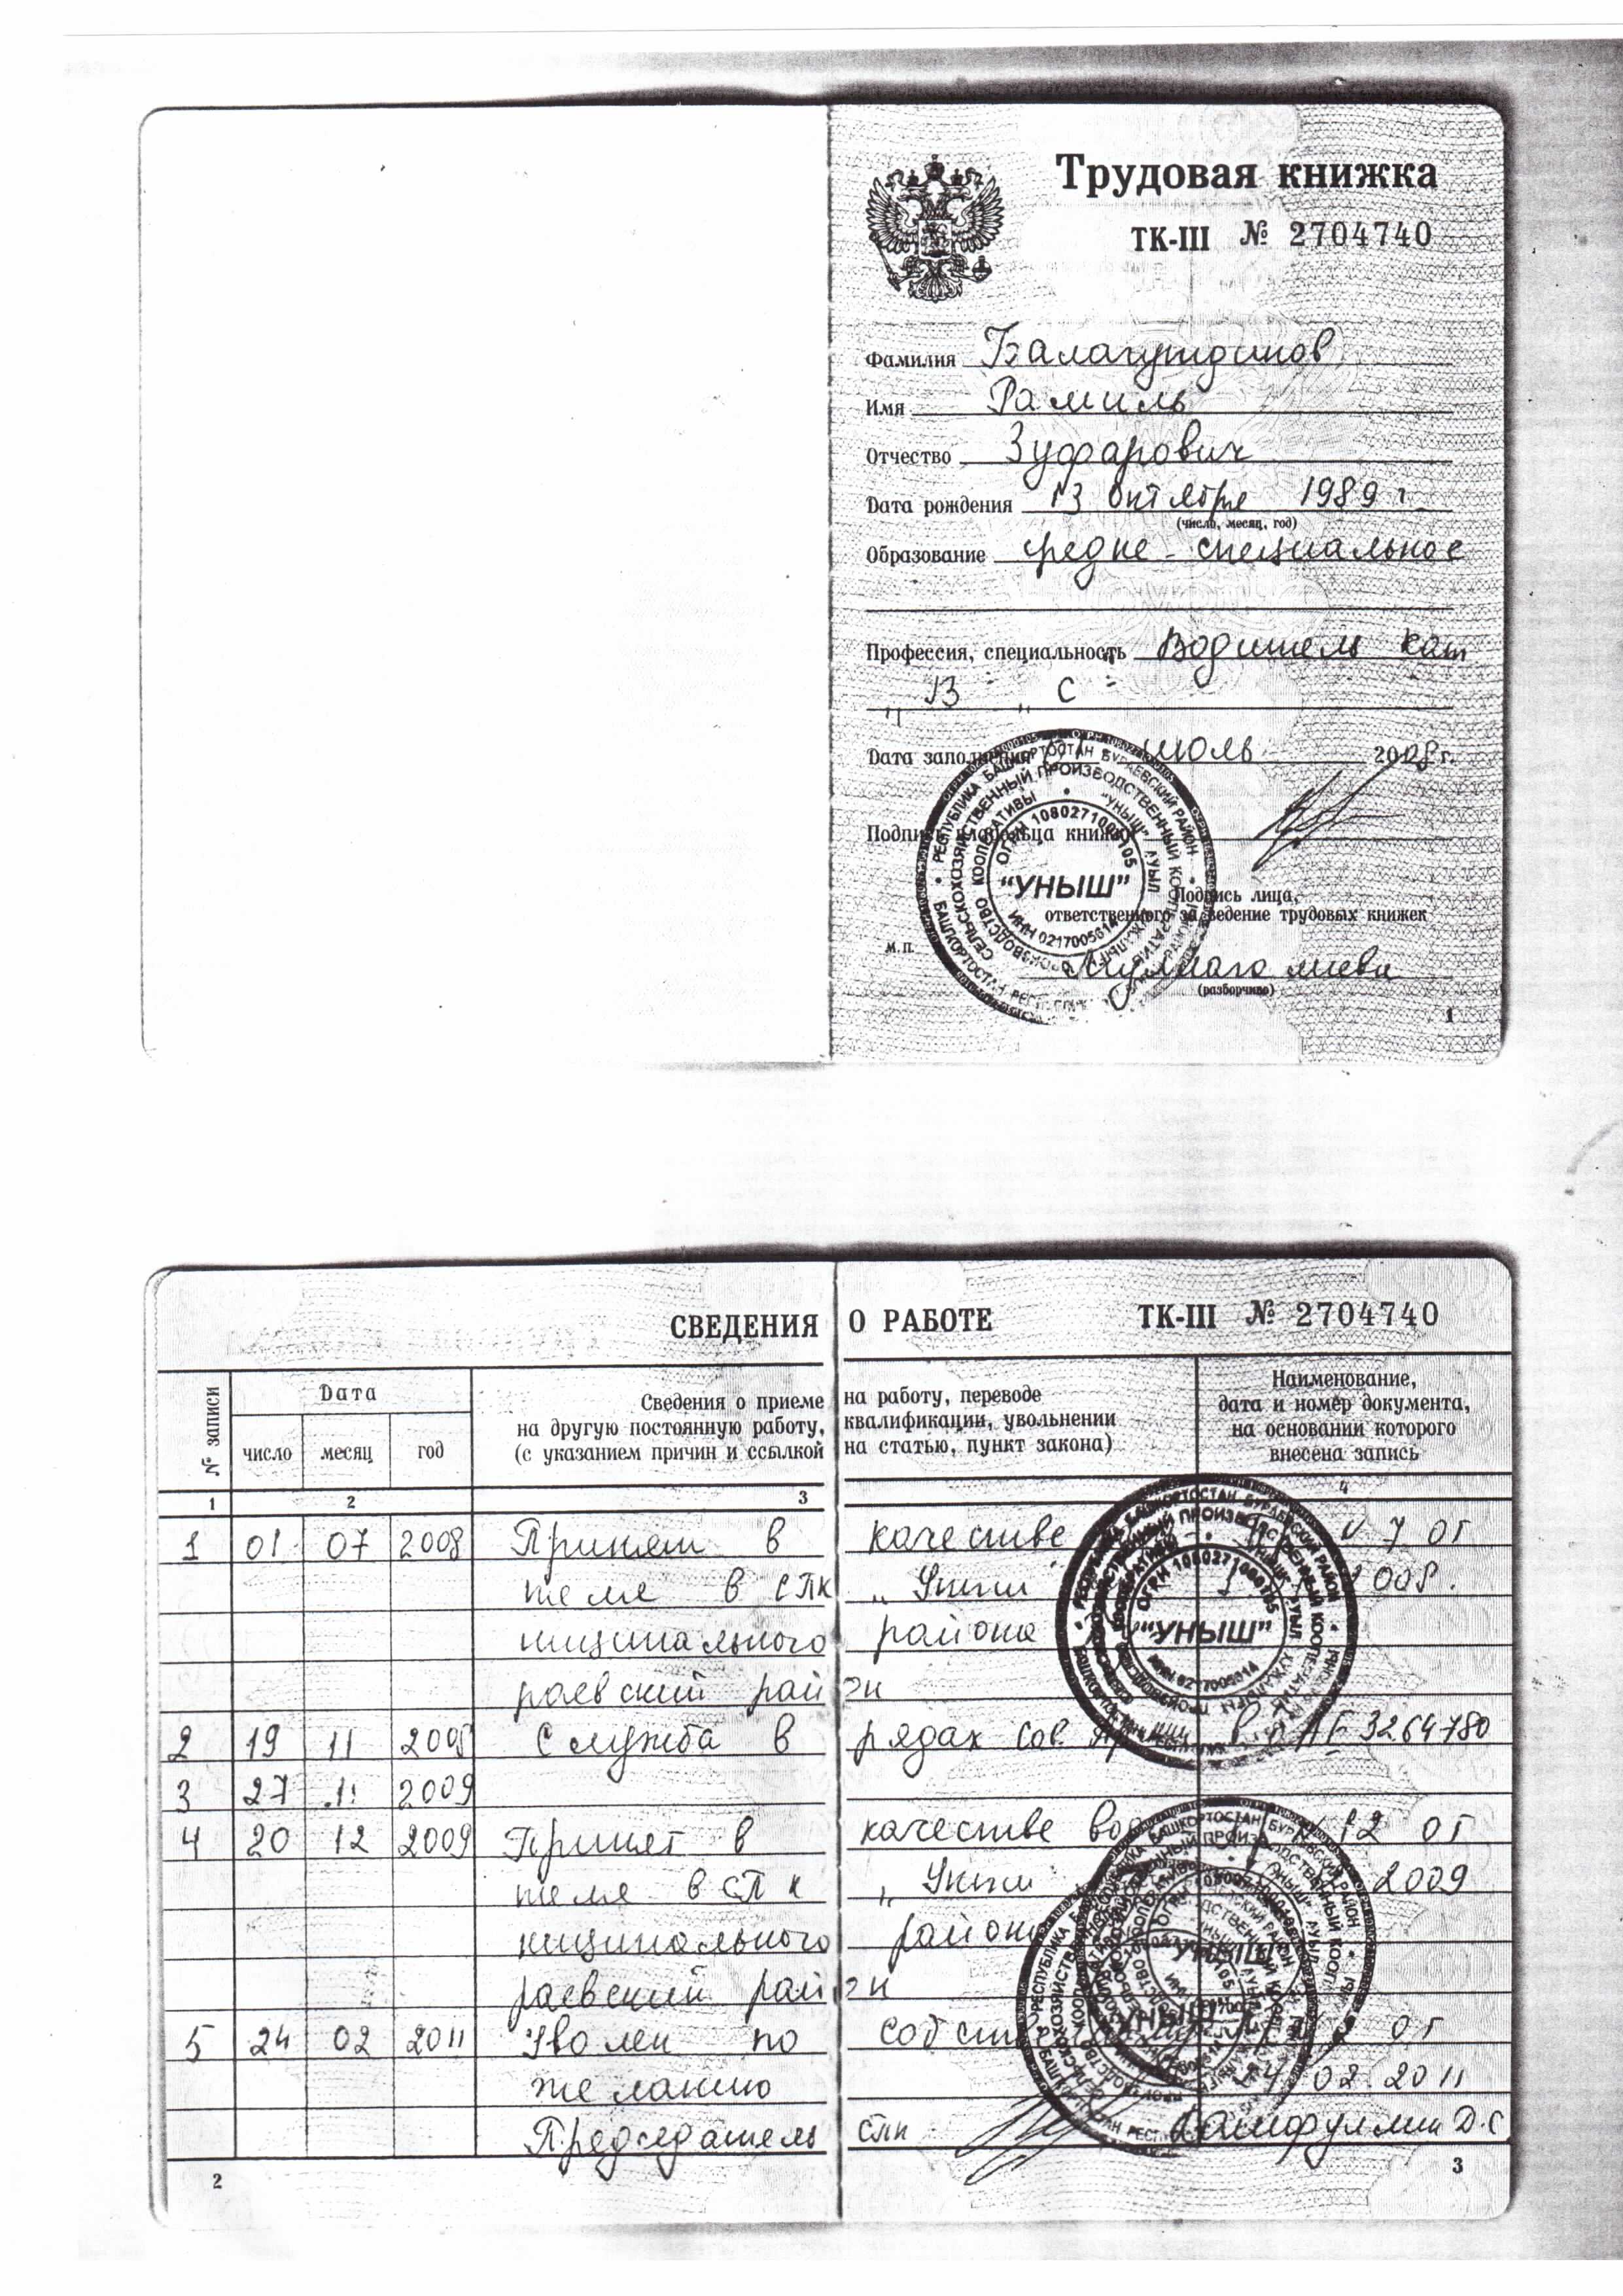 Трудовая книжка
ТК-III № 2704740
Фамилия Балагутдинов
Имя Рамиль
Отчество Зуфарович
Дата рождения 13 октября 1989 г.
(число, месяц, год)
Образование средне-специальное
Профессия, специальность Водитель кат
"В" "С"
Дата заполнения июль 2008 г.
Подпись владельца книжки
Подпись лица,
ответственного за ведение трудовых книжек
М.П.
(разборчиво)
РЕСПУБЛИКА БАШКОРТОСТАН БУРАЕВСКИЙ РАЙОН
СЕЛЬСКОХОЗЯЙСТВЕННЫЙ ПРОИЗВОДСТВЕННЫЙ КООПЕРАТИВ
"УНЫШ"
1
СВЕДЕНИЯ О РАБОТЕ ТК-III № 2704740
№ записи
Дата
число месяц год
Сведения о приеме на работу, переводе
на другую постоянную работу, квалификации, увольнении
(с указанием причин и ссылкой на статью, пункт закона)
Наименование,
дата и номер документа,
на основании которого
внесена запись
1 2 3 4
1 01 07 2008 Принят в качестве 7 от
теле в СПК „Уныш
ниципального района
раевский район
2 19 11 2008 Служба в рядах сов. АЕ 3264780
3 27 11 2009
4 20 12 2009 Принят в качестве 12 от
теле в СПК „Уныш 2009
ниципального района
раевский район
5 24 02 2011 Уволен по собств от
желанию 02.2011
Председатель СПК
"УНЫШ"
"УНЫШ"
2 3